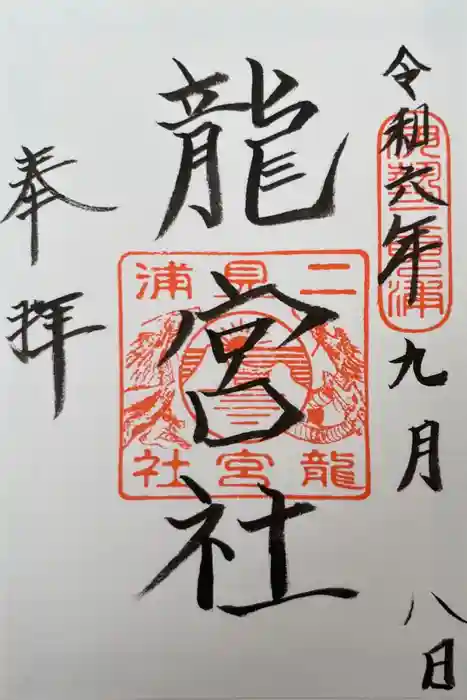 令和六年九月八日
伊勢二見浦
龍宮社
二見浦
龍宮社
奉拝